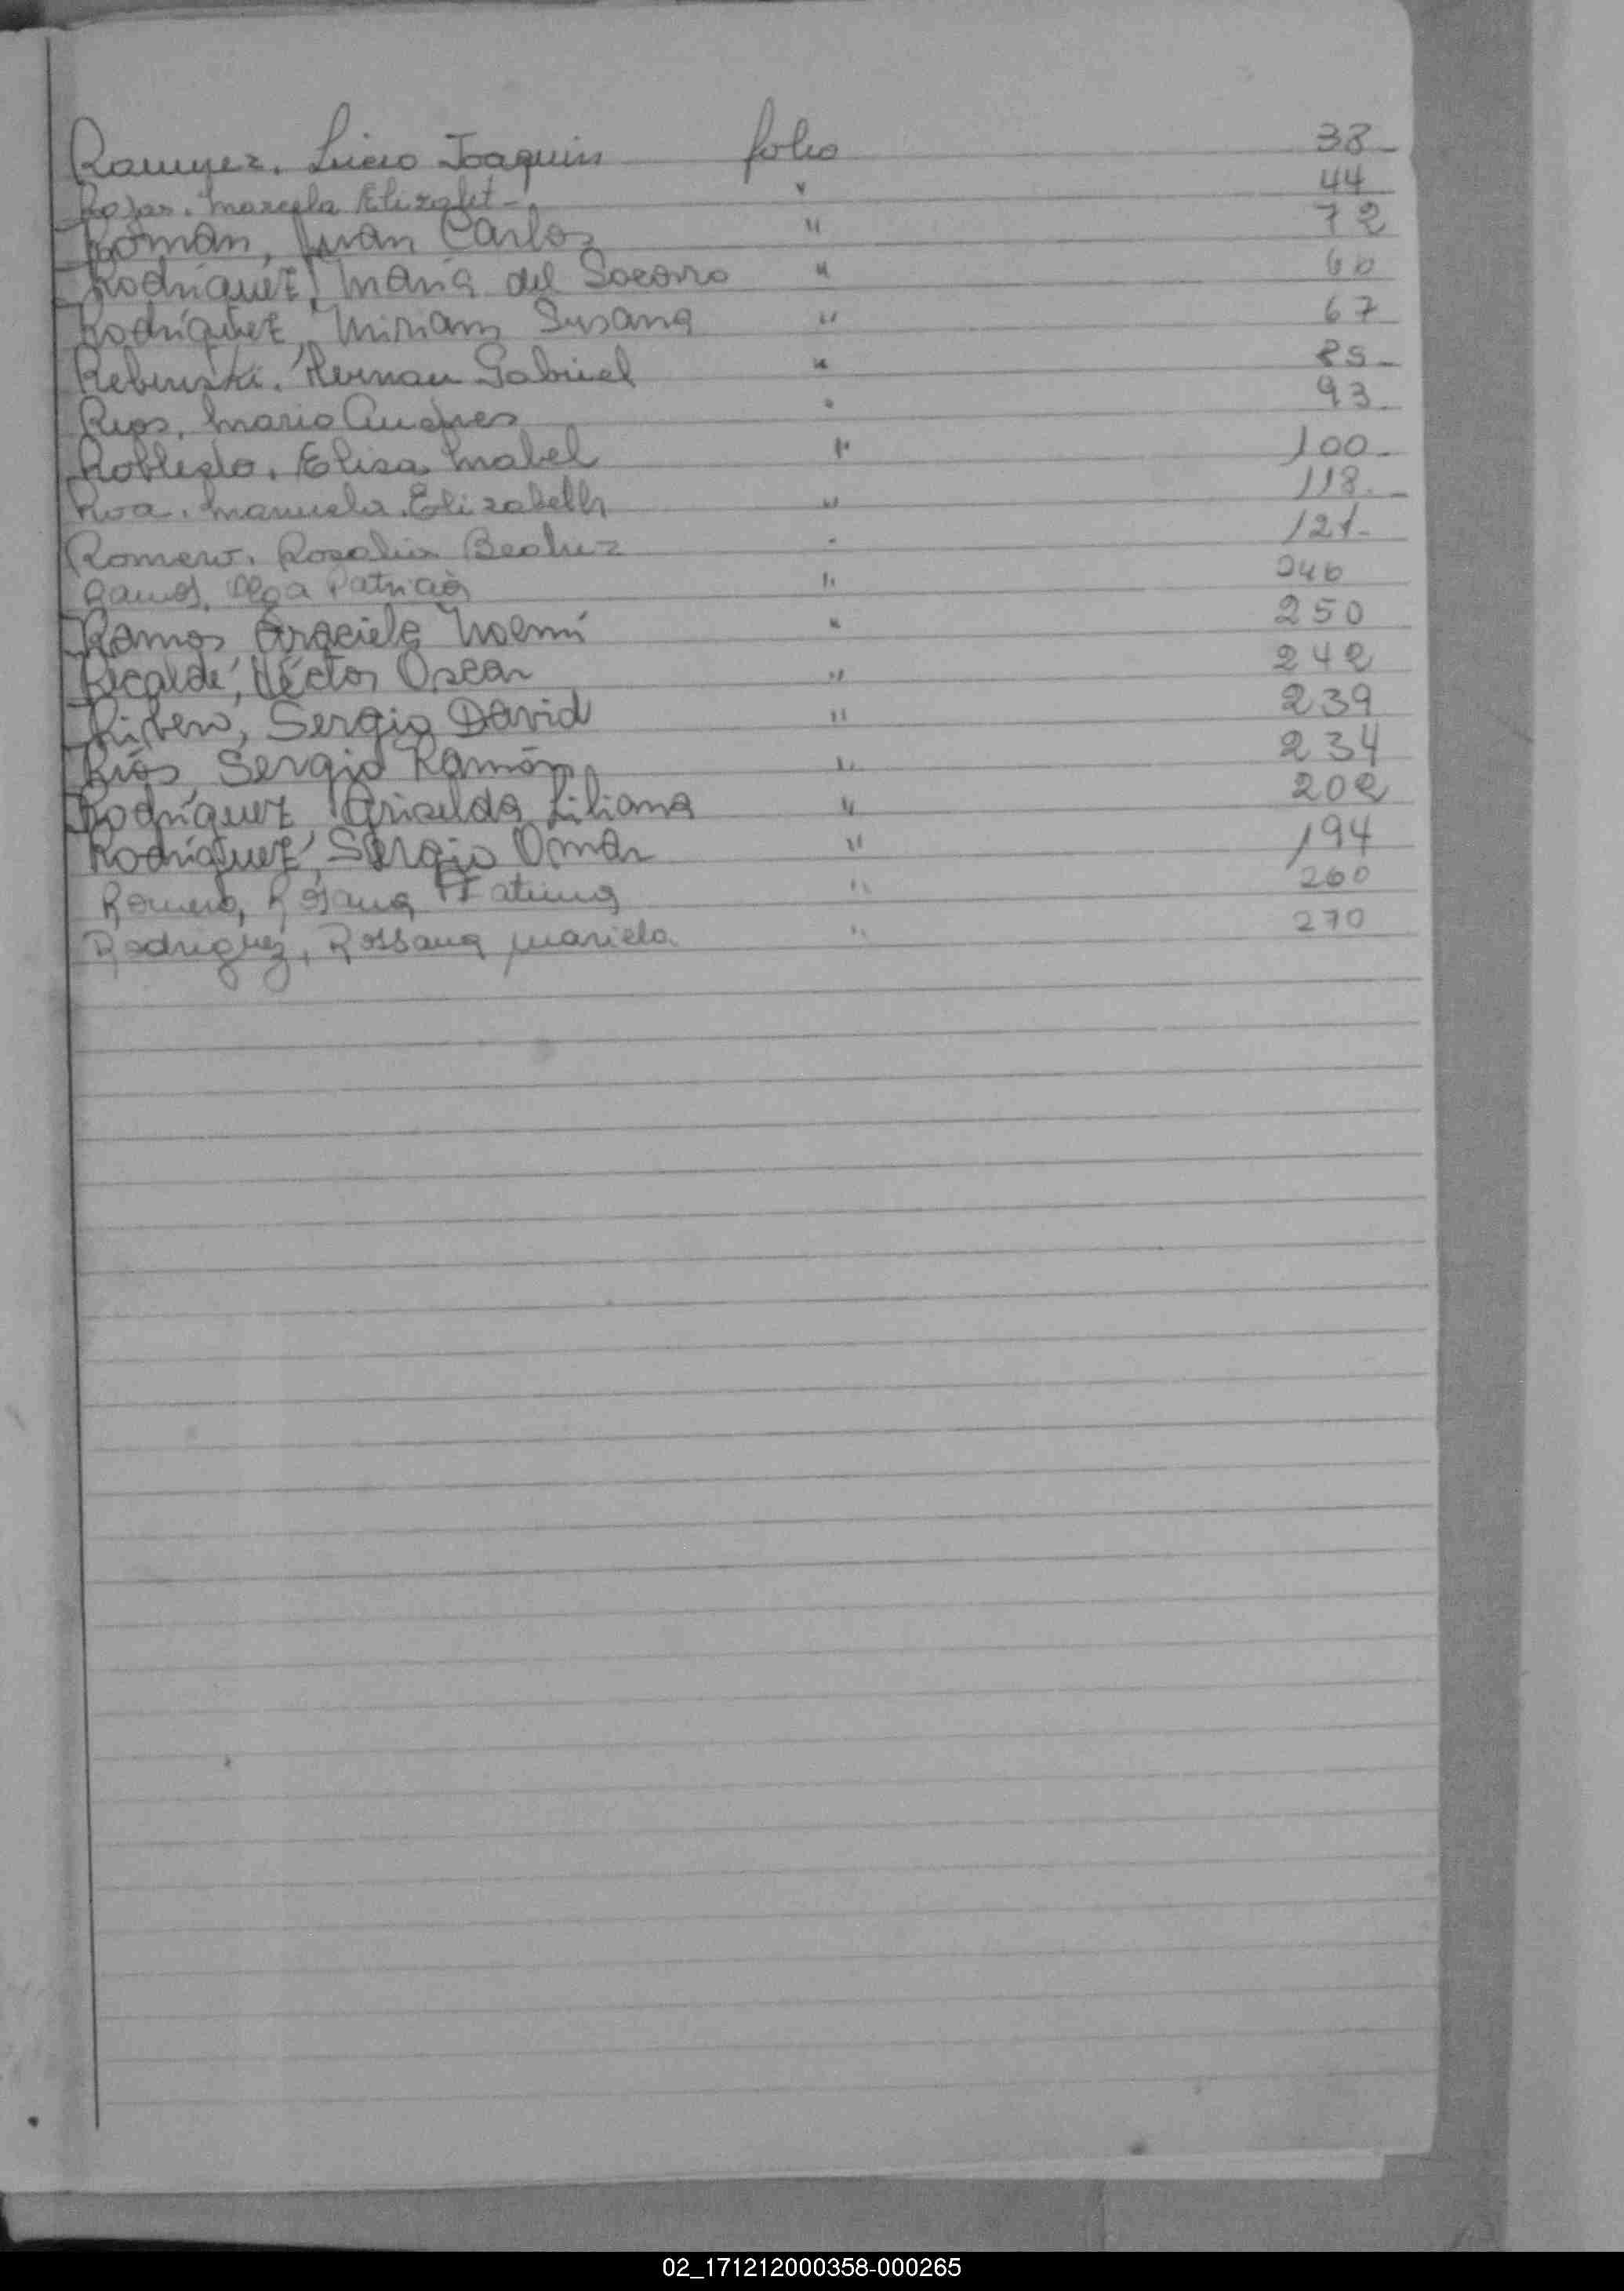 Ramirez, Lucio Joaquin folio 38
Rojas, Marcela Elizabet - " 44
Román, Juan Carlos " 72
Rodríguez, María del Socorro " 66
Rodríguez, Miriam Susana " 67
Rebinski, Hernan Gabriel " 85
Rios, Mario Andres " 93
Robledo, Elisa Mabel " 100
Roa, Manuela Elizabeth " 118
Romero, Rosalia Beatriz " 121
Ramos, Olga Patricia " 246
Ramos Graciela Noemí " 250
Ricalde, Héctor Oscar " 242
Rivero, Sergio David " 239
Ríos, Sergio Ramón " 234
Rodríguez Griselda Liliana " 202
Rodríguez, Sergio Omar " 194
Romero, Rosana Fatima " 260
Rodriguez, Rossana Mariela " 270
02_171212000358-000265